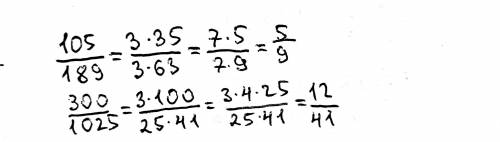 105/189 = 3·35/3·63 = 7·5/7·9 = 5/9
300/1025 = 3·100/25·41 = 3·4·25/25·41 = 12/41